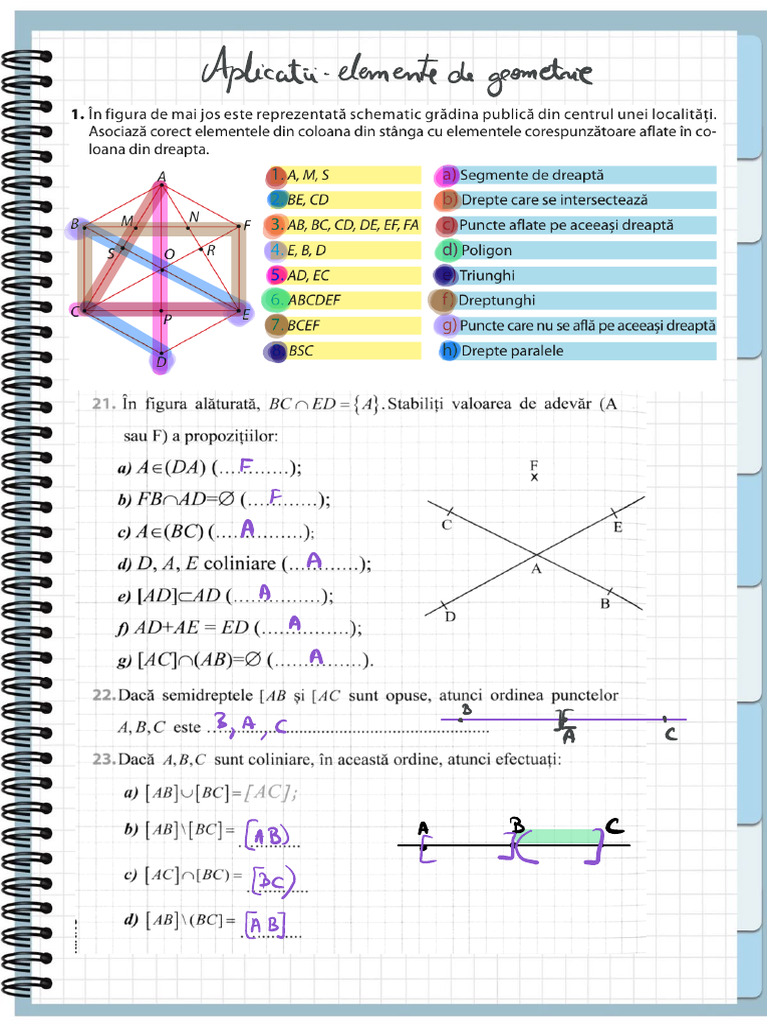 Aplicatii - elemente de geometrie
1. În figura de mai jos este reprezentată schematic grădina publică din centrul unei localități.
Asociază corect elementele din coloana din stânga cu elementele corespunzătoare aflate în co-
loana din dreapta.
A
B M N F
S O R
C P E
D
1. A, M, S
2. BE, CD
3. AB, BC, CD, DE, EF, FA
4. E, B, D
5. AD, EC
6. ABCDEF
7. BCEF
8. BSC
a) Segmente de dreaptă
b) Drepte care se intersectează
c) Puncte aflate pe aceeași dreaptă
d) Poligon
e) Triunghi
f) Dreptunghi
g) Puncte care nu se află pe aceeași dreaptă
h) Drepte paralele
21. În figura alăturată, BC∩ED={A}. Stabiliți valoarea de adevăr (A
sau F) a propozițiilor:
a) A∈(DA) (....F........);
b) FB∩AD=∅ (....F........);
c) A∈(BC) (....A..........);
d) D, A, E coliniare (...A........);
e) [AD]⊂AD (....A..........);
f) AD+AE = ED (....A..........);
g) [AC]∩(AB)=∅ (.....A.........).
F
C E
A
D B
22. Dacă semidreptele [AB și [AC sunt opuse, atunci ordinea punctelor
A,B,C este ..B, A, C..................................................
B A C
23. Dacă A,B,C sunt coliniare, în această ordine, atunci efectuați:
a) [AB]∪[BC]=[AC];
b) [AB]\[BC]= [AB)
c) [AC]∩[BC)= [BC)
d) [AB]\(BC]= [AB]
A B C